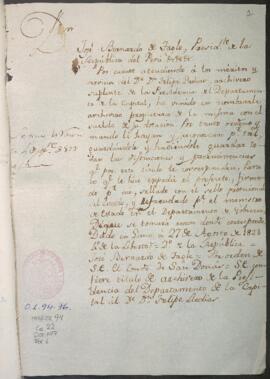 Don
José Bernardo de Tagle, Presid.te de la
República del Perú &&&
Por cuanto atendiendo a los méritos y
servicios del D.r D.n Felipe archivero
suplente de la Presidencia del Departamento
de la Capital, ha venido en nombrarle
archivero propietario de la misma con el
sueldo de su dotacion. Por tanto ordeno y
mando le hayan y tengan p.r tal
guardandole y haciendole guardar to-
das las distinciones y preeminencias
q.e por este titulo le corresponden. Para
lo q.e le hice expedir el presente, firmado
de p.r mi, sellado con el sello provisional
del Estado, y refrendado p.r el ministro de
Estado en el Departamento de Gobierno.
donde corresponda.
Dado en Lima á 27 de Agosto de 1823
4.o de la Libertad = 2.o de la República
= José Bernardo de Tagle = Por orden de
S.E. El Conde de San Donás = S.E. con-
fiere titulo de archivero de la Presi-
dencia del Departamento de la Capi-
tal al D.r D.n Felipe
O.L. 94-36